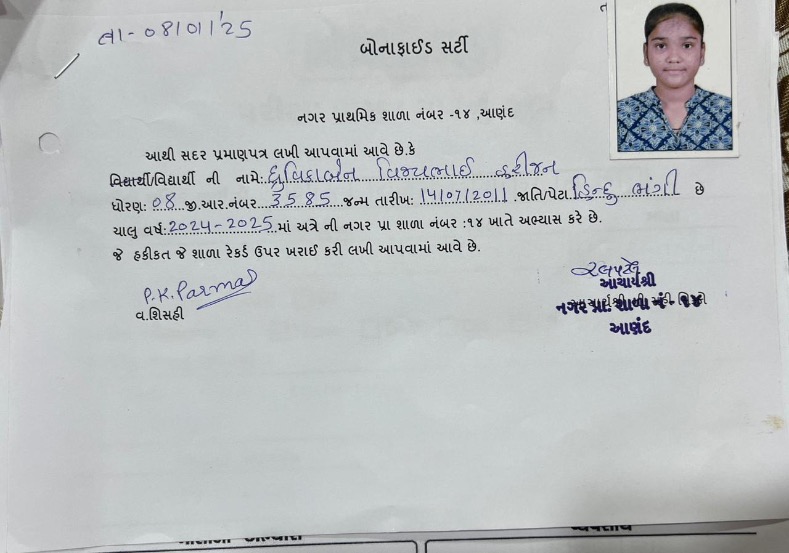 તા - 08/01/25
બોનાફાઈડ સર્ટી
નગર પ્રાથમિક શાળા નંબર -૧૪ ,આણંદ
આથી સદર પ્રમાણપત્ર લખી આપવામાં આવે છે.કે
વિદ્યાર્થી/વિદ્યાર્થી ની નામે: ધ્રુવિકાબેન વિજયભાઈ હરીજન
ધોરણ: 08 જી.આર.નંબર 3585 જન્મ તારીખ: 14/07/2011 .જાતિ/પેટા હિન્દુ ભંગી છે
ચાલુ વર્ષ: 2024-2025 માં અત્રે ની નગર પ્રા શાળા નંબર :૧૪ ખાતે અભ્યાસ કરે છે.
જે હકીકત જે શાળા રેકર્ડ ઉપર ખરાઈ કરી લખી આપવામાં આવે છે.
P.K.Parmar
વ.શિસહી
આચાર્યશ્રી
નગર પ્રા. શાળા નં - ૧૪
આણંદ